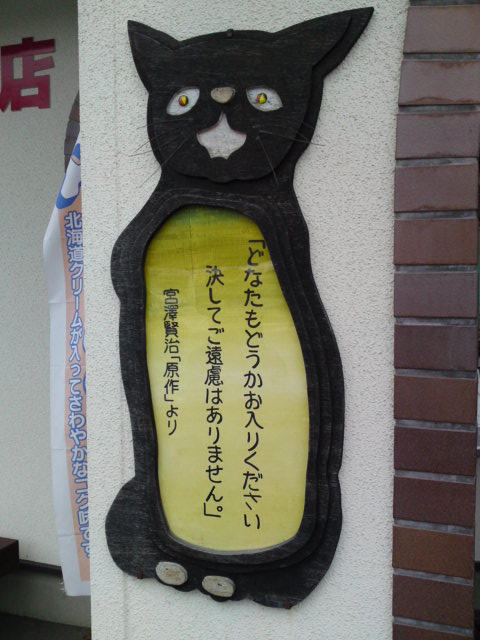 「どなたもどうかお入りください
決してご遠慮はありません。」
宮澤賢治「原作」より
店
北海道クリームが入ってさわやかな